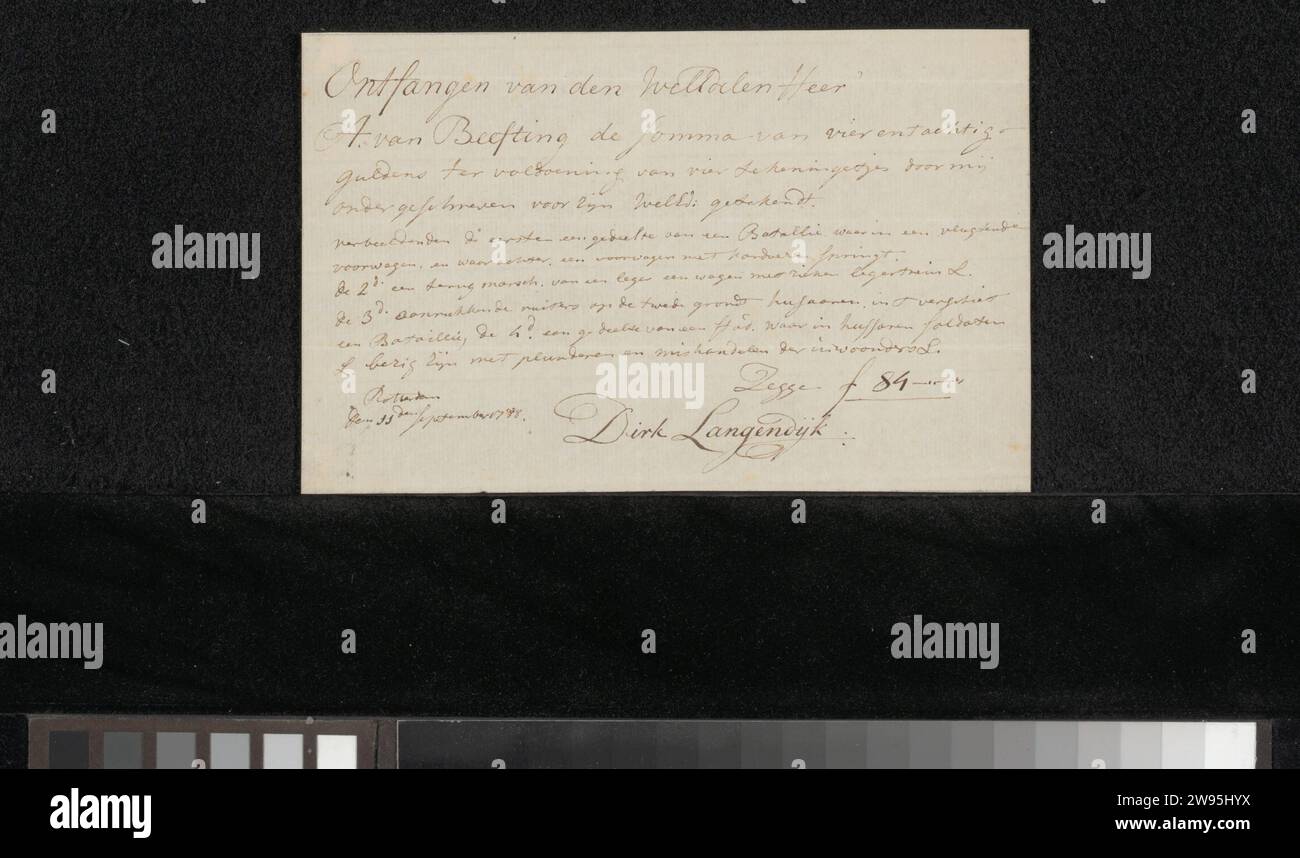 Ontfangen van den WelEdelen Heer
A. van Beefting de Somma van vierentachtig
guldens ter voldoening van vier tekeningetjes door mij
ondergeschreven voor zijn WelEd: getekendt.
verbeeldenden d' eersten een gedeelte van een Batallie waar in een vlugtende
voorwagen, en waar achter, een voorwagen met kardoesen springt.
de 2d. een terug marsch, van een leger een wagen met zieken legertrein &.
de 3d. aanrukkende ruiters op de twede grondt husaaren, in t verschiet
een Bataillie, de 4d. een gedeelte van een waar in hussaren soldaten
& bezig zijn met plunderen en mishandelen der inwoonders &.
Zegge f 84
Rotterdam
den 11den September 1788.
Dirk Langendijk.
alamy
Image ID: W95HYX
www.alamy.com